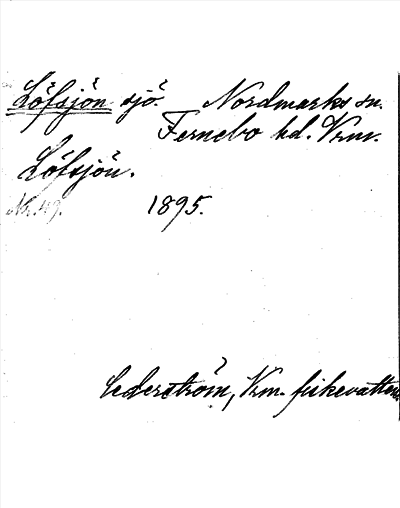 Löfsjön sjö. Nordmarks sn.
Fernebo hd. Vrm.
Löfsjön.
Nr. 49. 1895.
Cederström, Vrm. fiskevatten